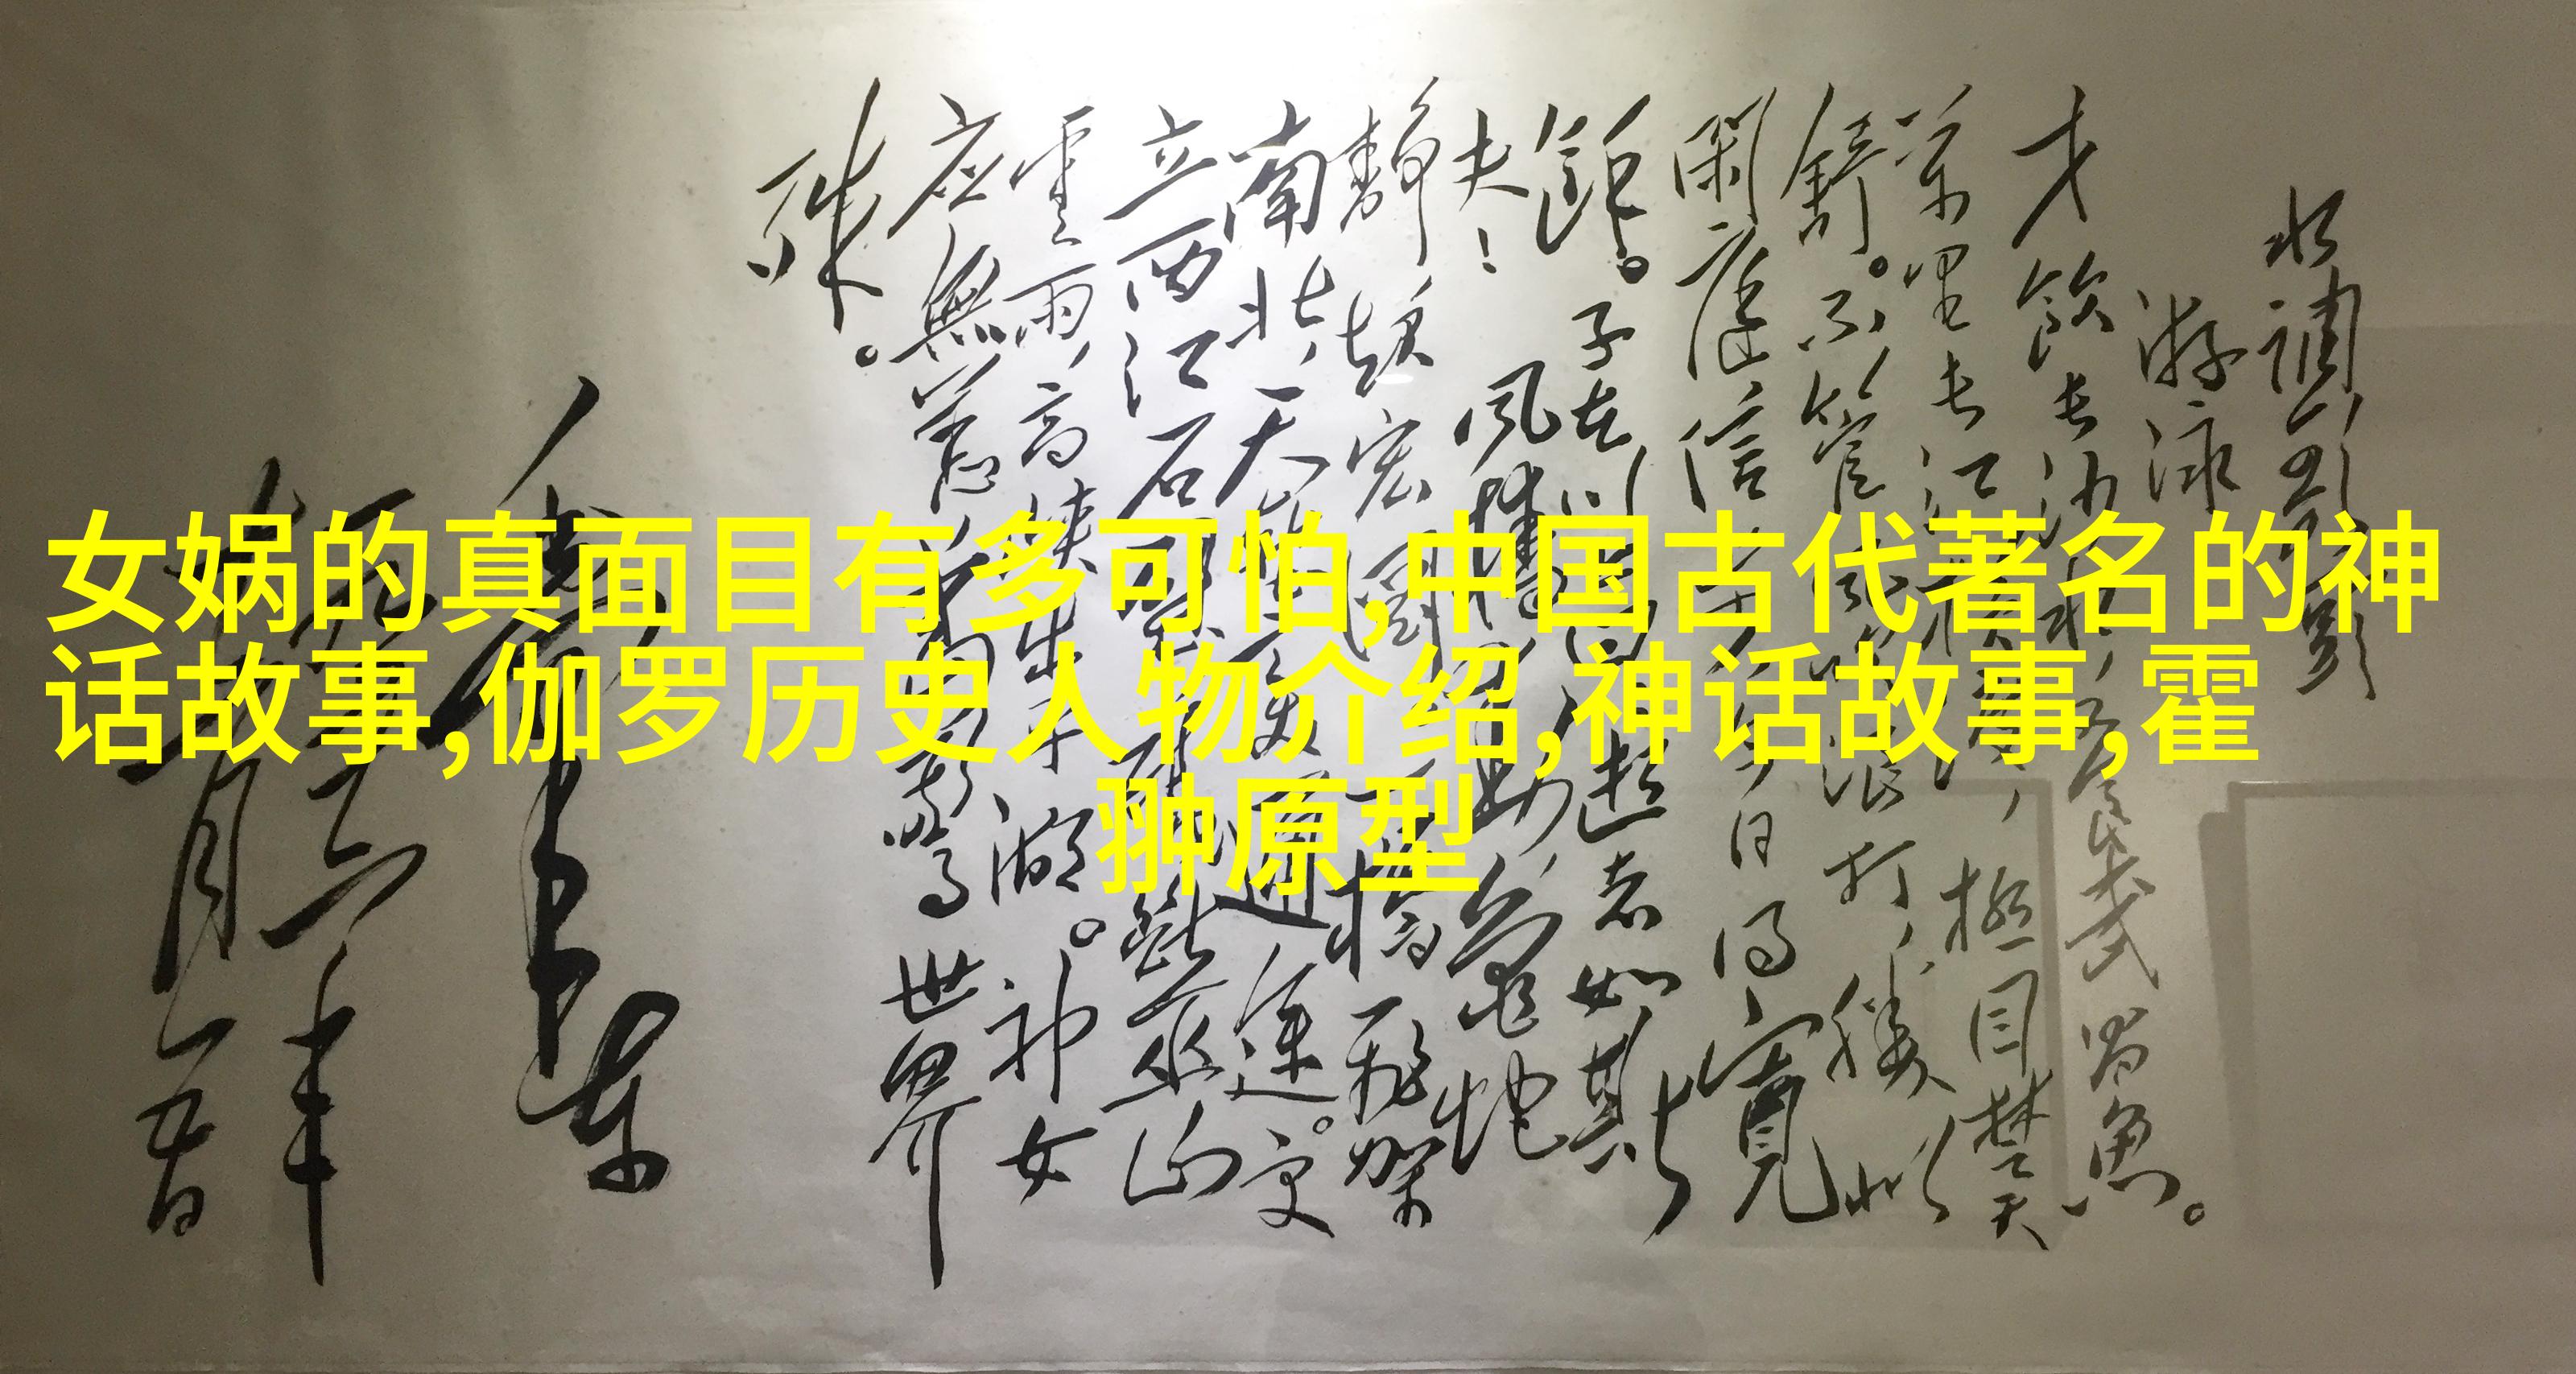 女娲的真面目有多可怕,中国古代著名的神
话故事,伽罗历史人物介绍,神话故事,霍
翀原型
水调歌头
游泳
才飲长沙水，又食武昌魚。
萬里长江横渡，极目楚天
舒。不管风吹浪打，勝似
闲庭信步，今日得寬
馀。子在川上曰：逝者如斯
夫！风樯动，龟蛇
静，起宏图。一橋飛架
南北，天堑变通途。更
立西江石壁，截断巫山
雲雨，高峡出平湖。神女
应無恙，当驚世界
殊。
毛泽东